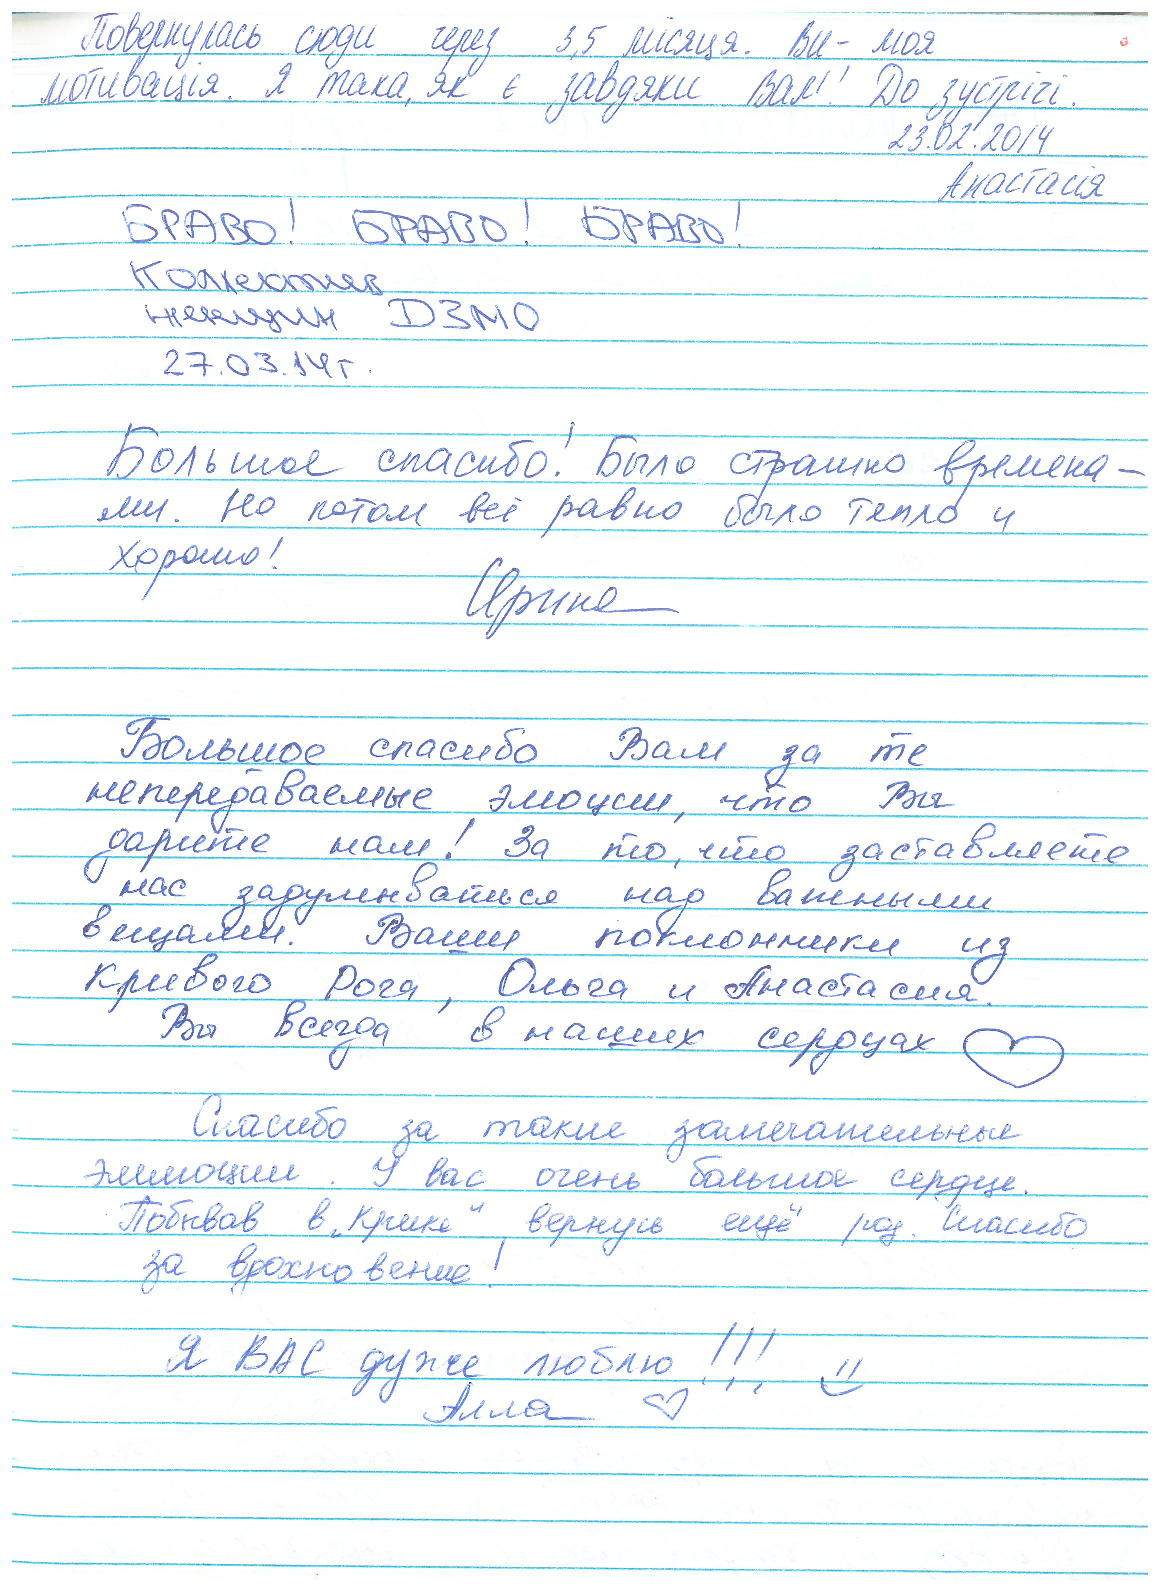 Повернулась сюди через 3,5 місяця. Ви - моя
мотивація. Я така, як є завдяки Вам! До зустрічі.
23.02.2014
Анастасія
БРАВО! БРАВО! БРАВО!
Коллектив
женщин ДЗМО
27.03.14г.
Большое спасибо! Было страшно времена-
ми. Но потом всё равно было тепло и
хорошо!
Ирина
Большое спасибо Вам за те
непередаваемые эмоции, что Вы
дарите нам! За то, что заставляете
нас задумываться над важными
вещами. Ваши поклонники из
Кривого Рога, Ольга и Анастасия.
Вы всегда в наших сердцах
Спасибо за такие замечательные
эммоции. У вас очень большое сердце.
Побывав в „Крике" вернусь ещё раз. Спасибо
за вдохновение!
Я ВАС дуже люблю!!!
Алла